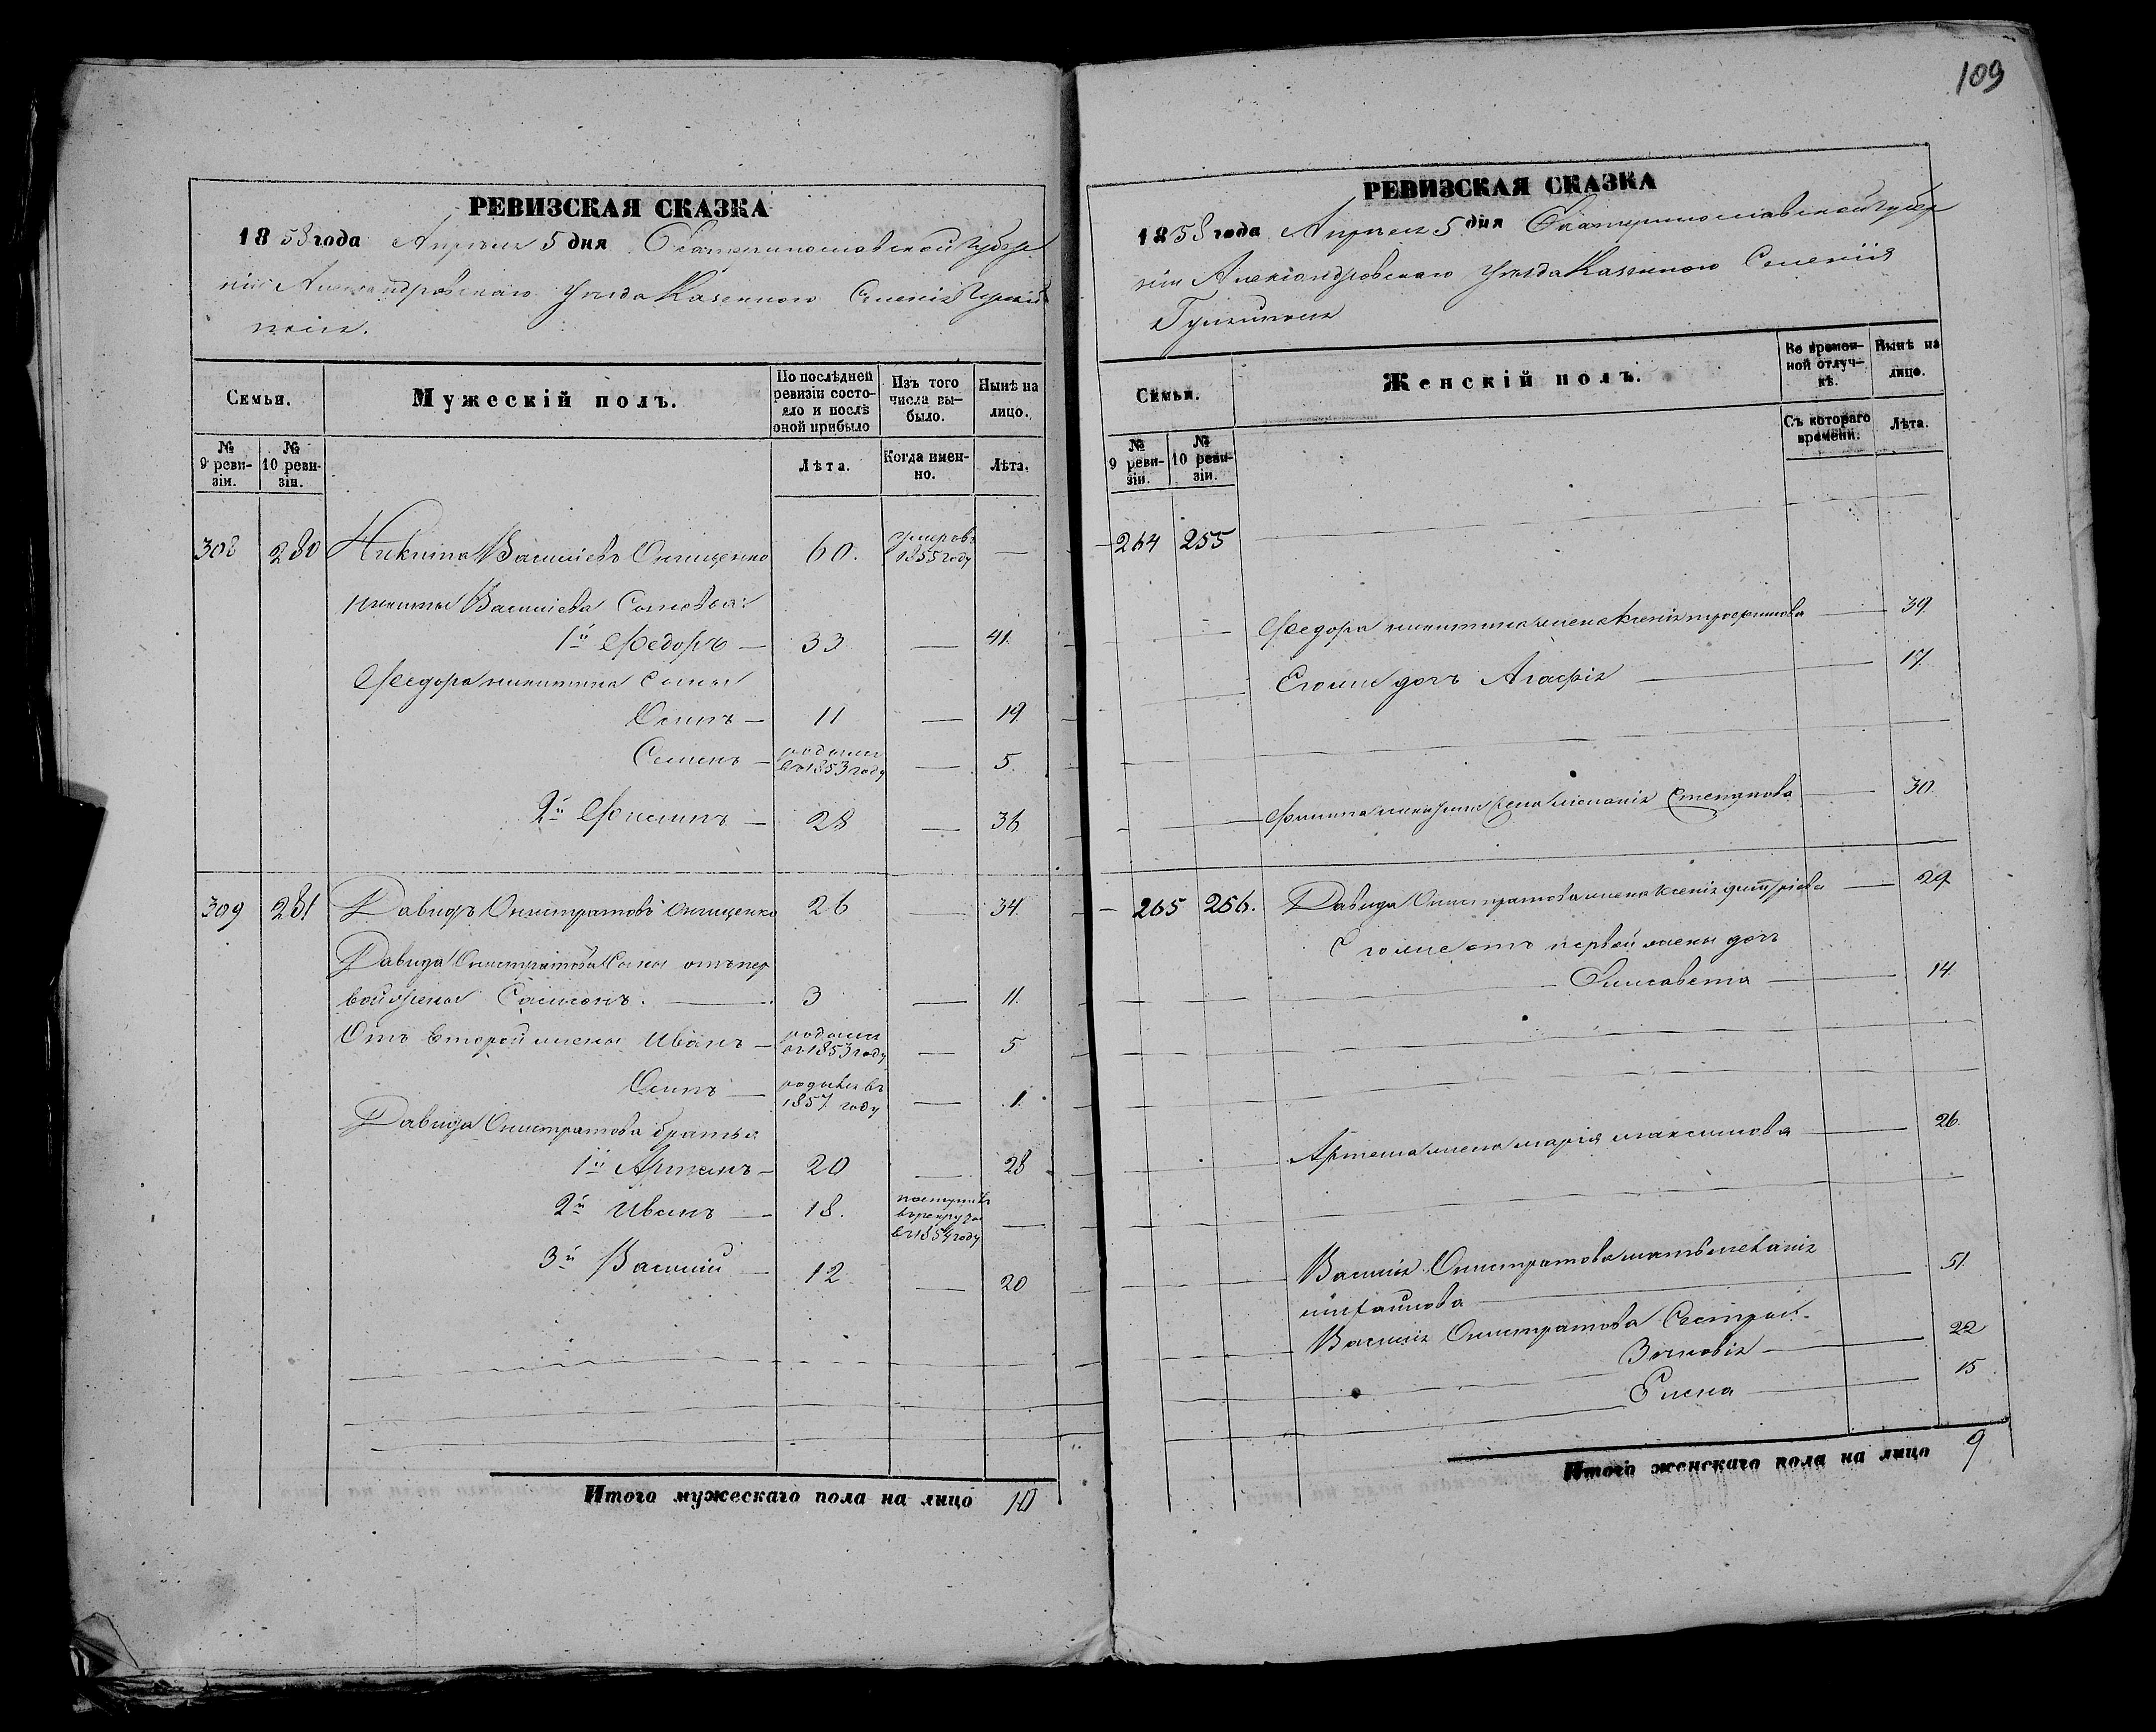 РЕВИЗСКАЯ СКАЗКА
1858 года Апреля 5 дня Екатеринославской губер
ніи Александровскаго уезда Казенного Селенія
РЕВИЗСКАЯ СКАЗКА
Семьи. Мужескій полъ. По послѣдней ревизіи состояло и послѣ оной прибыло Изъ того числа выбыло. Нынѣ на лицо.
№ 9 ревизіи. № 10 ревизіи. Лѣта. Когда именно. Лѣта.
308 280 Никита Васильевъ Онищенко 60. умеръ въ 1855 году —
Никиты Васильева Сыновья:
1й Федоръ — 33 — 41.
Федора Никитина Сыны
Осипъ — 11 — 19
Семенъ — родился въ 1853 году — 5.
2й Филипъ — 28 — 36
309 281 Давидъ Онистратовъ Онищенко 26 — 34.
Давида Онистратова Сыны отъ пер
вой жены Самсонъ. — 3 — 11.
Отъ второй жены Иванъ — родился въ 1853 году — 5
Осипъ — родился въ 1857 году — 1.
Давида Онистратова братья
1й Артемъ — 20 — 28
2й Иванъ — 18. поступилъ въ рекруты въ 1854 году —
3й Василий — 12 — 20
Итого мужескаго пола на лицо 10
109
РЕВИЗСКАЯ СКАЗКА
1858 года Апреля 5 дня Екатеринославской губер
ніи Александровскаго уезда Казенного Селенія
Семьи. Женскій полъ. Во временной отлучкѣ. Нынѣ на лицо.
№ 9 ревизіи. № 10 ревизіи. Съ котораго времени. Лѣта.
264 255
Федора Никитина жена Ксенія Трофимова — 39
Его же дочь Агафія — 17
Филипа Никитина жена Меланія Степанова — 30.
265 256. Давида Онистратова жена Ксенія Дмитріева — 29
Его же отъ первой жены дочь
Елисавета — 14
Артема жена Марія Максимова — 26.
Василія Онистратова мать Меланія
51.
Василія Онистратова Сестры
Зеновія — 22
Елена — 15
Итого женскаго пола на лицо 9